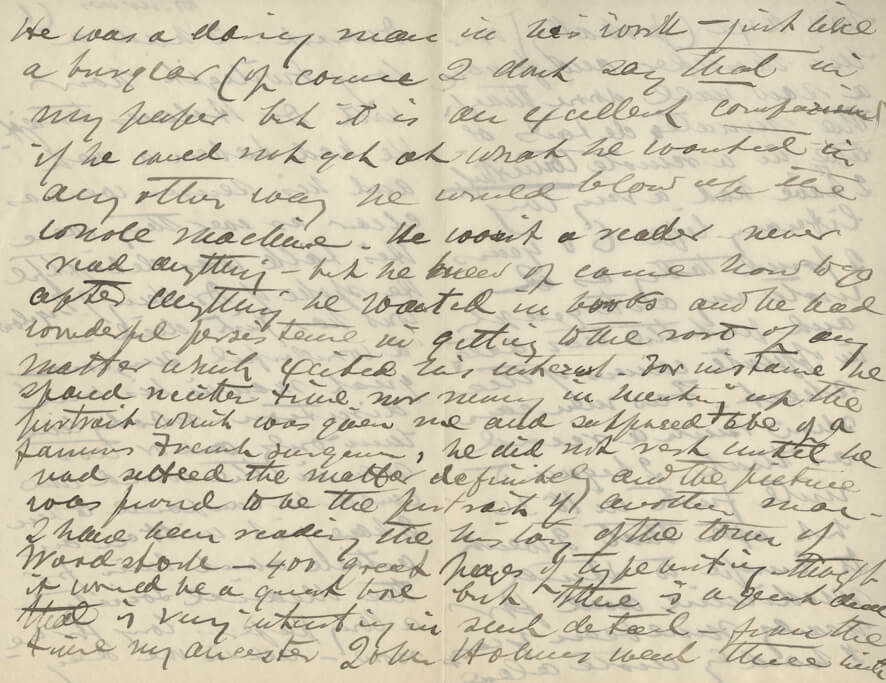 He was a daring man in his work – just like
a burglar (of course I dont say that in
my paper but it is an excellent comparison)
if he could not get at what he wanted in
any other way he would blow up the
whole machine. He wasn't a reader never
read anything – but he knew of course how to go
after anything he wanted in books and he had
wonderful persistence in getting to the root of any
matter which excited his interest. For instance he
spared neither time nor money in hunting up the
portrait which was given me and supposed to be of a
famous French surgeon, he did not rest until he
had settled the matter definitely and the picture
was proved to be the portrait of another man –
I have been reading the history of the town of
Woodstock – 400 great pages of typewriting – thought
it would be a great bore but there is a great deal
that is very interesting in such detail – from the
time my ancestor John Holmes went there with